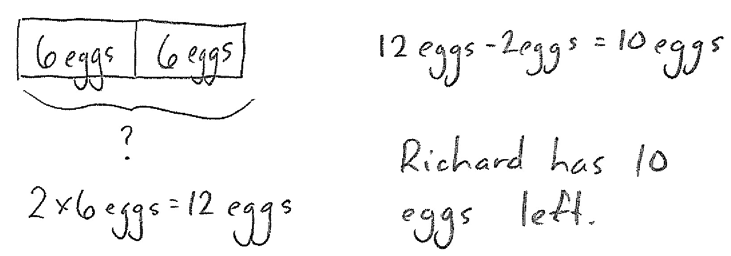 6 eggs 6 eggs
?
2 × 6 eggs = 12 eggs
12 eggs - 2 eggs = 10 eggs
Richard has 10
eggs left.